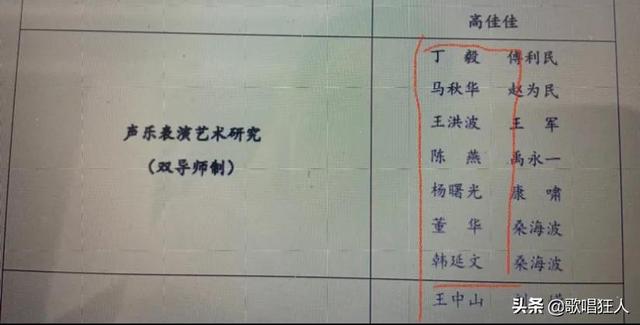 高佳佳
声乐表演艺术研究
（双导师制）
丁 毅 傅利民
马秋华 赵为民
王洪波 王 军
陈 燕 禹永一
杨曙光 康 啸
董 华 桑海波
韩延文 桑海波
王中山
头条 @歌唱狂人